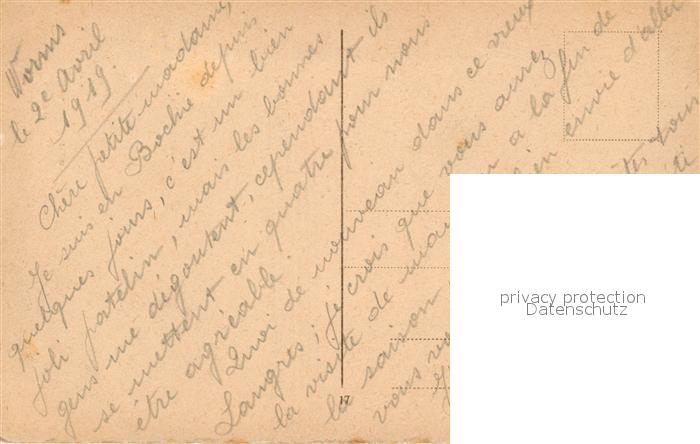 Worms
le 2e Avril
1919.
Chère petite madame,
Je suis en Bochie depuis
quelques jours, c'est un bien
joli patelin, mais les bonnes
gens me dégoutent, cependant ils
se mettent en quatre pour nous
être agréable.
Quoi de nouveau dans ce vieux
Langres, je crois que vous aurez
la visite de à la fin de
la saison en envie d'aller
vous
17
privacy protection
Datenschutz